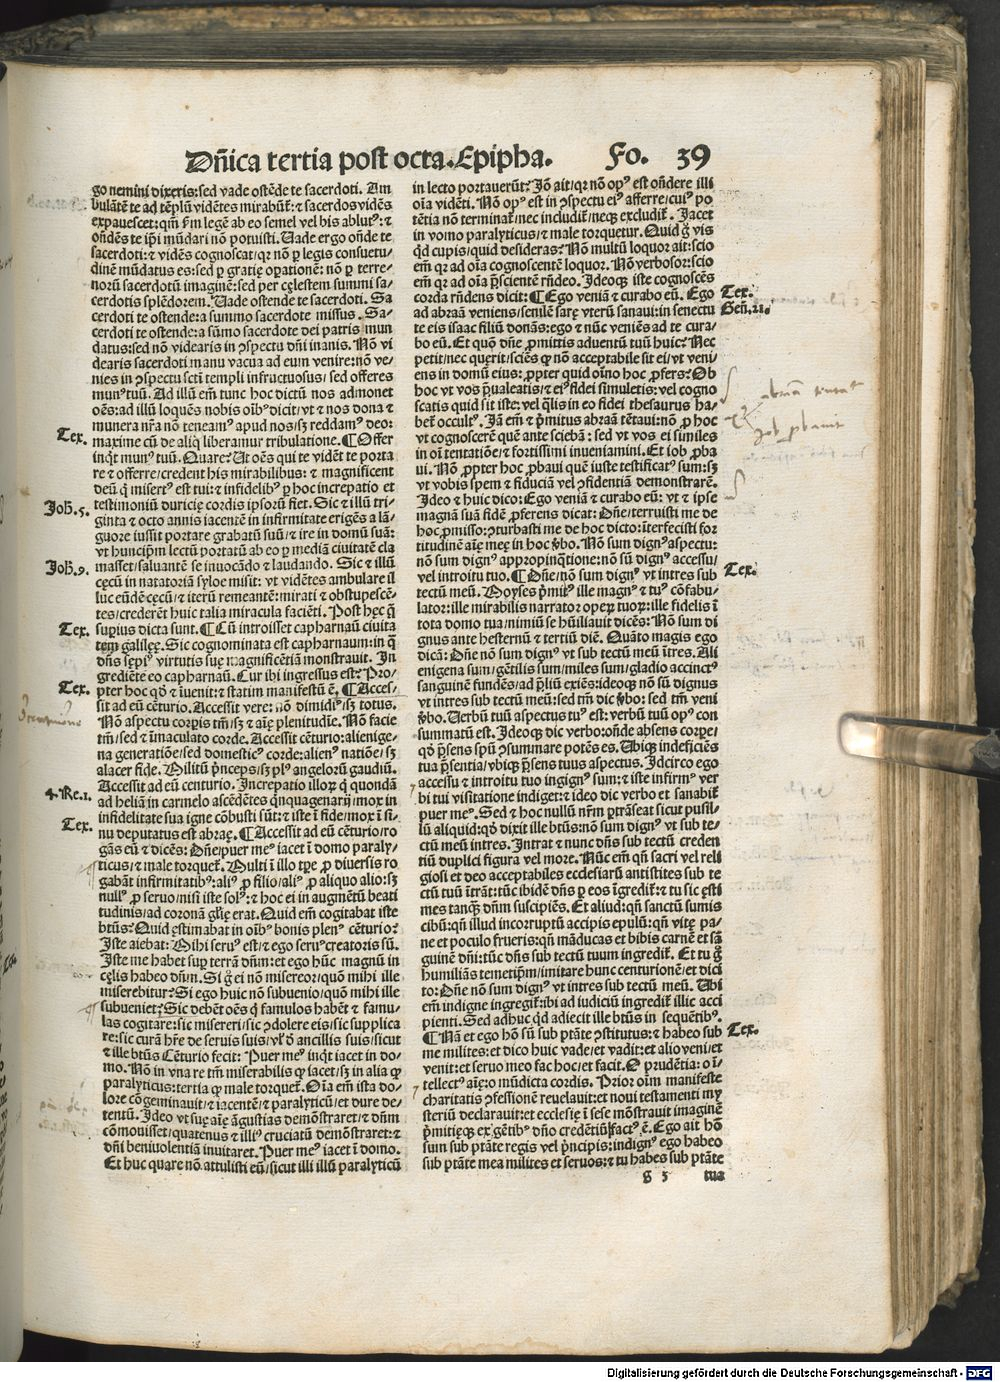 Dn̄ica tertia post octa. Epipha. Fo. 39
go nemini dixeris: sed vade ostēde te sacerdoti. Am
bulātē te ad tēplū vidētes mirabūt᷑: ⁊ sacerdos vidēs
expauescet: qm̄ ẜm legē ab eo semel vel bis ablutꝰ: ⁊
ondēs te ip̄i mūdari nō potuisti. Uade ergo ondē te
sacerdoti: ⁊ vidēs cognoscat/ qr nō ꝑ legis consuetu/
dinē mūdatus es: sed ꝑ gratię oꝑationē: nō ꝑ terre/
norū sacerdotū imaginē: sed per cęlestem summi sa/
cerdotis splēdorem. Uade ostende te sacerdoti. Sa
cerdoti te ostende: a summo sacerdote missus. Sa/
cerdoti te ostende: a sūmo sacerdote dei patris mun
datus: sed nō videaris in ↄspectu dn̄i inanis. Nō vi
dearis sacerdoti manu vacua ad eum venire: nō ve/
nies in ↄspectu scti templi infructuosus/ sed offeres
munꝰ tuū. Ad illū em̄ tunc hoc dictū nos admonet
oēs: ad illū loquēs nobis oībꝰ dicit/ vt ⁊ nos dona ⁊
munera nr̄a nō teneamꝰ apud nos/ sꝫ reddamꝰ deo:
maxime cū de aliq̄ liberamur tribulatione. ¶ Offer
inqt munꝰ tuū. Quare? Ut oēs qui te vidēt te porta
re ⁊ offerre/ credent his mirabilibus: ⁊ magnificent
deū q̄ misertꝰ est tui: ⁊ infidelibꝰ ꝑ hoc increpatio et
testimoniū duricię cordis ipsorū fiet. Sic ⁊ illū tri/
ginta ⁊ octo annis iacentē in infirmitate erigēs a lā/
guore iussit portare grabatū suū/ ⁊ ire in domū suā:
vt huncip̄m lectū portatū ab eo ꝑ mediā ciuitatē cla
masset/ saluantē se inuocādo ⁊ laudando. Sic ⁊ illū
cęcū in natatoriā syloe misit: vt vidētes ambulare il
luc eūdē cęcū/ ⁊ iterū remeantē: mirati ⁊ obstupescē/
tes/ crederēt huic talia miracula faciēti. Post hęc q̄
suꝑius dicta sunt. ¶ Cū introisset capharnaū ciuita
tem galilęę. Sic cognominata est capharnaum: in q̄
dn̄s sępiꝰ virtutis suę magnificētiā monstrauit. In
grediēte eo capharnaū. Cur ibi ingressus est? Pro/
pter hoc qd̄ ⁊ iuenit: ⁊ statim manifestū ē. ¶ Acces/
sit ad eū cēturio. Accessit vere: nō dimidiꝰ/ sꝫ totus.
Nō aspectu corpis tm̄/ sꝫ ⁊ aīę plenitudīe. Nō facie
tm̄/ sed ⁊ īmaculato corde. Accessit cēturio: alienige/
na generatiōe/ sed domesticꝰ corde: alienꝰ natiōe/ sꝫ
alacer fide. Militū p̄nceps/ sꝫ plꝰ angelorū gaudiū.
Accessit ad eū centurio. Increpatio illoꝝ q̄ quondā
ad heliā in carmelo ascēdētes q̄nquagenarij/ mox in
infidelitate sua igne cōbusti sūt: ⁊ iste ī fide/ mox ī si/
nu deputatus est abraę. ¶ Accessit ad eū cēturio/ ro
gās eū ⁊ dicēs: Dn̄e/ puer meꝰ iacet ī domo paraly/
ticus/ ⁊ male torquet᷑. Multi ī illo tꝑe ꝓ diuersis ro
gabāt infirmitatibꝰ: aliꝰ ꝓ filio/ aliꝰ ꝓ aliquo alio: sꝫ
nullꝰ ꝓ seruo/ nisi iste solꝰ: ⁊ hoc ei in augmētū beati
tudinis/ ad coronā glię erat. Quid em̄ cogitabat iste
btūs? Quid ęstimabat in oībꝰ bonis plenꝰ cēturio?
Iste aiebat: Mihi seruꝰ est/ ⁊ ego seruꝰ creatoris sū.
Iste me habet suꝑ terrā dn̄m: et ego hūc magnū in
cęlis habeo dn̄m. Si g̊ ei nō misereor/ quō mihi ille
miserebitur? Si ego huic nō subuenio/ quō mihi ille
subueniet? Sic debēt oēs q̄ famulos habēt ⁊ famu/
las cogitare: sic misereri/ sic ↄdolere eis/ sic supplica
re: sic curā hr̄e de seruis suis/ vl̓ d̓ ancillis suis/ sicut
⁊ ille btūs Cēturio fecit: Puer meꝰ inq̄t iacet in do/
mo. Nō in vna re tm̄ miserabilis ꝙ iacet/ sꝫ in alia ꝙ
paralyticus: tertia ꝙ male torquet᷑. Oīa em̄ ista do/
lore cōgeminauit/ ⁊ iacentē/ ⁊ paralyticū/ et dure de/
tentū. Ideo vt suę aīę āgustias demōstraret/ ⁊ dn̄m
cōmouisset/ quatenus ⁊ illiꝰ cruciatū demōstraret: ⁊
dn̄i beniuolentiā inuitaret. Puer meꝰ iacet ī domo.
Et huc quare nō attulisti eū/ sicut illi illū paralyticū
Tex.
Joh̄. 5.
Joh̄. 9.
Tex.
Tex.
4. Re. 1.
Tex.
in lecto portauerūt? Iō ait/ qr nō opꝰ est ondere illi
oīa vidēti. Nō opꝰ est in ↄspectu eiꝰ afferre/ cuiꝰ po
tētia nō terminat᷑/ nec includit᷑/ necꝫ excludit᷑. Jacet
in domo paralyticus/ ⁊ male torquetur. Quid g̊ vis
qd̄ cupis/ quid desideras? Nō multū loquor ait: scio
em̄ qr ad oīa cognoscentē loquor. Nō verbosor: scio
em̄ qr ad oīa p̄scientē rn̄deo. Ideoqꝫ iste cognoscēs
corda rn̄dens dicit: ¶ Ego veniā ⁊ curabo eū. Ego
ad abraā veniens/ senilē sarę vterū sanaui: in senectu
te eis isaac filiū donās: ego ⁊ nūc veniēs ad te cura/
bo eū. Et quō dn̄e ꝓmittis aduentū tuū huic? Nec
petit/ nec querit/ sciēs ꝙ nō acceptabile sit ei/ vt veni/
ens in domū eius: ꝓpter quid oīno hoc ꝓfers? Ob
hoc vt vos p̄ualeatis/ ⁊ eiꝰ fidei simuletis: vel cogno
scatis quid sit iste: vel q̄lis in eo fidei thesaurus ha/
bet᷑ occultꝰ. Jā em̄ ⁊ p̄mitus abraā tētaui: nō ꝓ hoc
vt cognoscerē quē ante sciebā: sed vt vos ei similes
in oī tentatiōe/ ⁊ fortissimi inueniamini. Et iob ꝓba
ui. Nō ꝓpter hoc ꝓbaui quē iuste testificatꝰ sum: sꝫ
vt vobis spem ⁊ fiduciā vel ↄfidentiā demonstrarē.
Ideo ⁊ huic dico: Ego veniā ⁊ curabo eū: vt ⁊ ipse
magnā suā fidē ꝓferens dicat: Dn̄e/ terruisti me de
hoc ꝓmisso: ↄturbasti me de hoc dicto: īterfecisti for
titudinē aīę męę in hoc v̓bo. Nō sum dignꝰ aspectu:
nō sum dignꝰ appropinq̄tione: nō sū dignꝰ accessu/
vel introitu tuo. ¶ Dn̄e/ nō sum dignꝰ vt intres sub
tectū meū. Moyses p̄miꝰ ille magnꝰ ⁊ tuꝰ cōfabu/
lator: ille mirabilis narrator opeꝝ tuoꝝ: ille fidelis ī
tota domo tua/ nimiū se hūiliauit dicēs: Nō sum di
gnus ante hesternū ⁊ tertiū diē. Quāto magis ego
dicā: Dn̄e nō sum dignꝰ vt sub tectū meū ītres. Ali
enigena sum/ gētilis sum/ miles sum/ gladio accinctꝰ
sanguinē fundēs/ ad p̄liū exiēs: ideoqꝫ nō sū dignus
vt intres sub tectū meū: sed tm̄ dic v̓bo: sed tm̄ veni
v̓bo. Uerbū tuū aspectus tuꝰ est: verbū tuū opꝰ con
summatū est. Ideoqꝫ dic verbo: onde absens corpe/
qd̄ p̄sens spū ↄsummare potēs es. Ubiqꝫ indeficiēs
tua p̄sentia/ vbiqꝫ p̄sens tuus aspectus. Idcirco ego
accessu ⁊ introitu tuo indignꝰ sum: ⁊ iste infirmꝰ ver
bi tui visitatione indiget: ⁊ ideo dic verbo et sanabit᷑
puer meꝰ. Sed ⁊ hoc nullū nr̄m ꝑtrāseat sicut pusil/
lū aliquid: qd̄ dixit ille btūs: nō sum dignꝰ vt sub te/
ctū meū intres. Intrat ⁊ nunc dn̄s sub tectū creden
tiū duplici figura vel more. Nūc em̄ qn̄ sacri vel reli
giosi et deo acceptabiles ecclesiarū antistites sub te
ctū tuū ītrāt: tūc ibidē dn̄s ꝑ eos īgredit᷑: ⁊ tu sic ęsti
mes tanqꝫ dn̄m suscipiēs. Et aliud: qn̄ sanctū sumis
cibū: qn̄ illud incorruptū accipis epulū: qn̄ vitę pa/
ne et poculo frueris: qn̄ māducas et bibis carnē et sā
guinē dn̄i: tūc dn̄s sub tectū tuum ingredit᷑. Et tu g̊
humiliās temetip̄m/ imitare hunc centurionē/ et dici
to: Dn̄e nō sum dignꝰ vt intres sub tectū meū. Ubi
em̄ indigne ingredit᷑: ibi ad iudiciū ingredit᷑ illic acci
pienti. Sed adhuc qd̄ adiecit ille btūs in sequētibꝰ.
¶ Nā et ego hō sū sub ptāte ↄstitutus: ⁊ habeo sub
me milites: et dico huic vade/ et vadit: et alio veni/ et
venit: et seruo meo fac hoc/ et facit. O prudētia: o ī/
tellectꝰ aīę: o mūdicta cordis. Prior oīm manifeste
charitatis ↄfessionē reuelauit: et noui testamenti my
steriū declarauit: et ecclesię ī sese mōstrauit imaginē
p̄mitięqꝫ ex gētibꝰ dn̄o credētiū factꝰ ē. Ego ait hō
sum sub ptāte regis vel p̄ncipis: indignꝰ ego habeo
sub ptāte mea milites et seruos: ⁊ tu habes sub ptāte
g 3 tua
Tex.
Gen̄. 21.
Tex.
Tex.